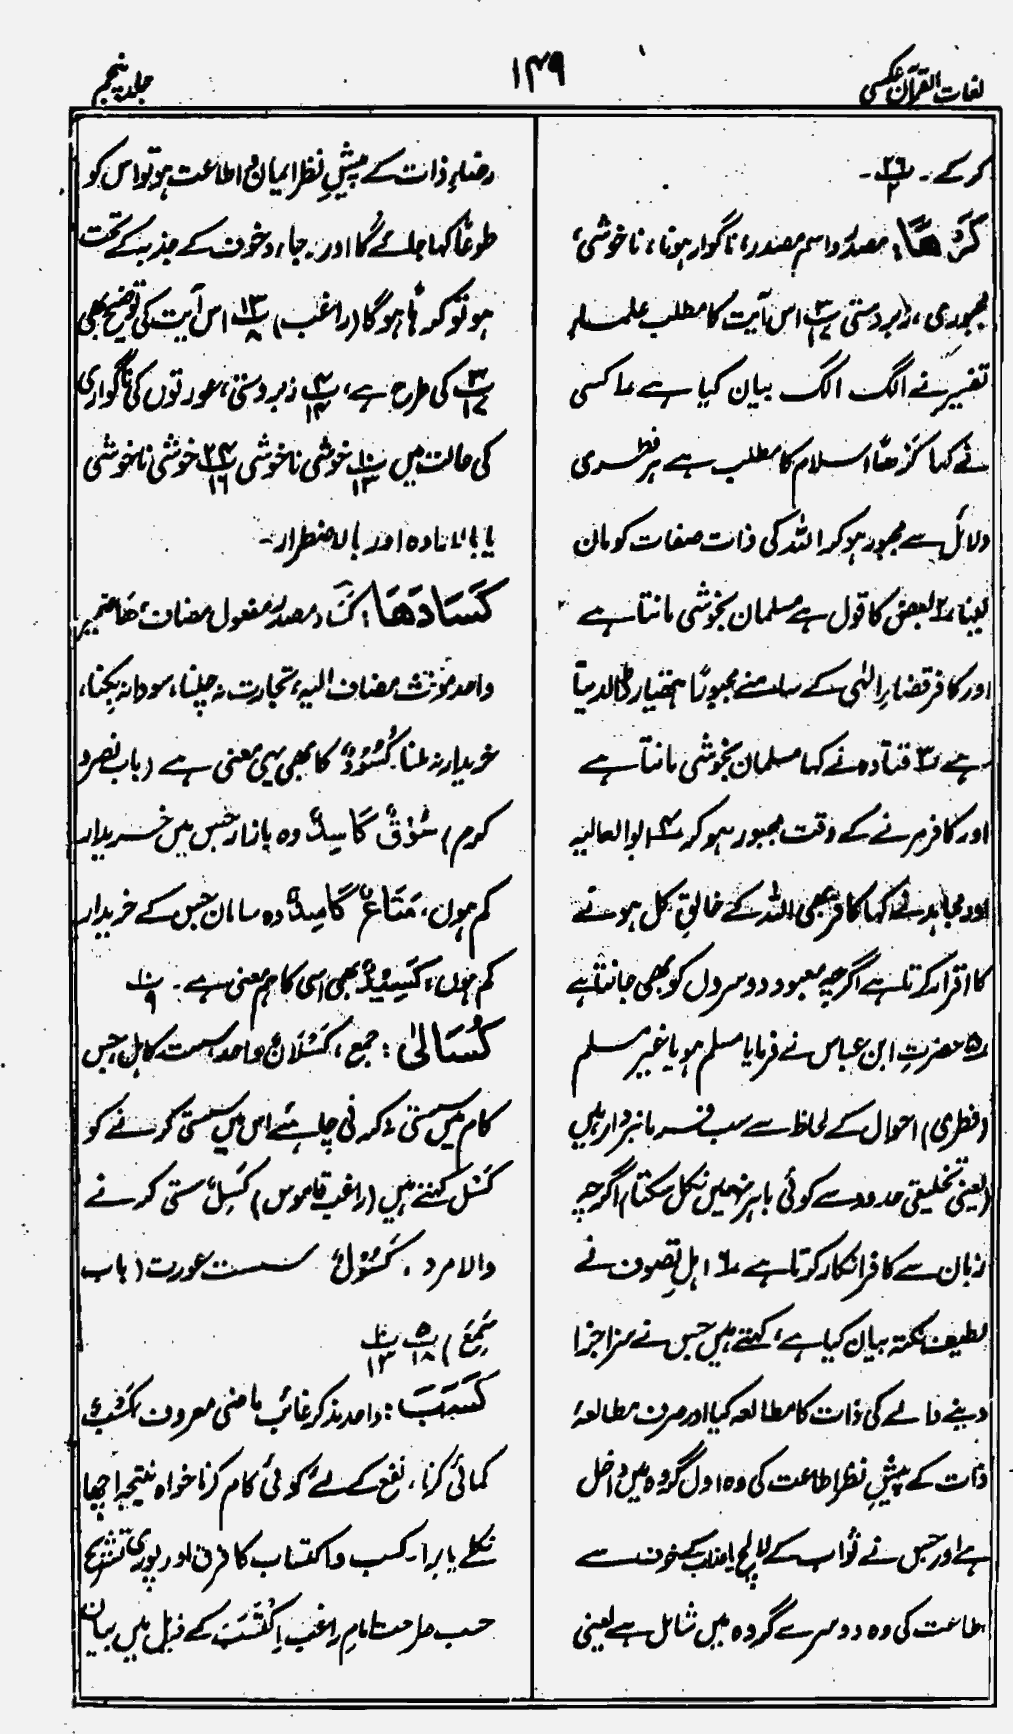 لغات القرآن عکسی
۱۴۹
جلد پنجم
کر کے ۔ پ۲۶/۲ ۔
کَرْھًا: مصدر و اسم مصدر، ناگوار ہونا، ناخوشی،
مجبوری، زبردستی پ۳/۱۷ اس آیت کا مطلب علماء
تفسیر نے الگ الگ بیان کیا ہے ۱ کسی
نے کہا کرھًا اسلام کا مطلب ہے ہر فطری
دلائل سے مجبور ہو کر اللہ کی ذات صفات کو مان
لینا ۲ بعض کا قول ہے مسلمان بخوشی مانتا ہے
اور کافر قضاء الٰہی کے سامنے مجبورًا ہتھیار ڈالدیتا
ہے ۳ قتادہ نے کہا مسلمان بخوشی مانتا ہے
اور کافر مرنے کے وقت مجبور ہو کر ۴ ابو العالیہ
اور مجاہد نے کہا کافر بھی اللہ کے خالق کل ہونے
کا اقرار کرتا ہے اگرچہ معبود دوسروں کو بھی جانتا ہے
۵ حضرت ابن عباس نے فرمایا مسلم ہو یا غیر مسلم
(فطری) احوال کے لحاظ سے سب فرمانبردار ہیں
(یعنی تخلیقی حدود سے کوئی باہر نہیں نکل سکتا) اگرچہ
زبان سے کافر انکار کرتا ہے ۶ اہلِ تصوف نے
لطیف نکتہ بیان کیا ہے، کہتے ہیں جس نے سزا جزا
دینے والے کی ذات کا مطالعہ کیا اور صرف مطالعۂ
ذات کے پیشِ نظر اطاعت کی وہ اول گروہ میں داخل
ہے اور جس نے ثواب کے لالچ یا عذاب کے خوف سے
اطاعت کی وہ دوسرے گروہ میں شامل ہے یعنی
رضاءِ ذات کے پیشِ نظر ایمان و اطاعت ہو تو اس کو
طوعًا کہا جائے گا اور رجاء و خوف کے جذبہ کے تحت
ہو تو کرہًا ہو گا (راغب) پ۱۳/۸ اس آیت کی توضیح بھی
پ۳/۱۷ کی طرح ہے، پ۴/۱۴ زبردستی، عورتوں کی ناگواری
کی حالت میں پ۱۰/۱۳ خوشی ناخوشی پ۲۴/۱۶ خوشی ناخوشی
یا بالارادہ اور بالاضطرار۔
کَسَادَھَا: کساد مصدر مفعول مضاف، ھَا ضمیر
واحد مؤنث مضاف الیہ، تجارت نہ چلنا، سودا نہ بکنا،
خریدار نہ ملنا کُسُوْدٌ کا بھی یہی معنی ہے (باب نصر و
کرم) سُوْقٌ کَاسِدٌ وہ بازار جس میں خریدار
کم ہوں، مَتَاعٌ کَاسِدٌ وہ سامان جس کے خریدار
کم ہوں، کَسِیْدٌ بھی اسی کا ہم معنی ہے۔ پ۱۰/۹
کُسَالیٰ: جمع، کَسْلَانُ واحد، سست کاہل، جس
کام میں سستی نہ کرنی چاہئے اس میں سستی کرنے کو
کَسَل کہتے ہیں (راغب قاموس) کَسِلٌ سستی کرنے
والا مرد، کَسُوْلٌ سست عورت (باب
سَمِعَ) پ۵/۱۸ پ۱۰/۱۳
کَسَبَ: واحد مذکر غائب ماضی معروف کَسْبٌ
کمائی کرنا، نفع کے لئے کوئی کام کرنا خواہ نتیجہ اچھا
نکلے یا برا۔ کسب و اکتساب کا فرق اور پوری تشریح
حسب صراحت امام راغب اِکْتَسَبَ کے ذیل میں بیان